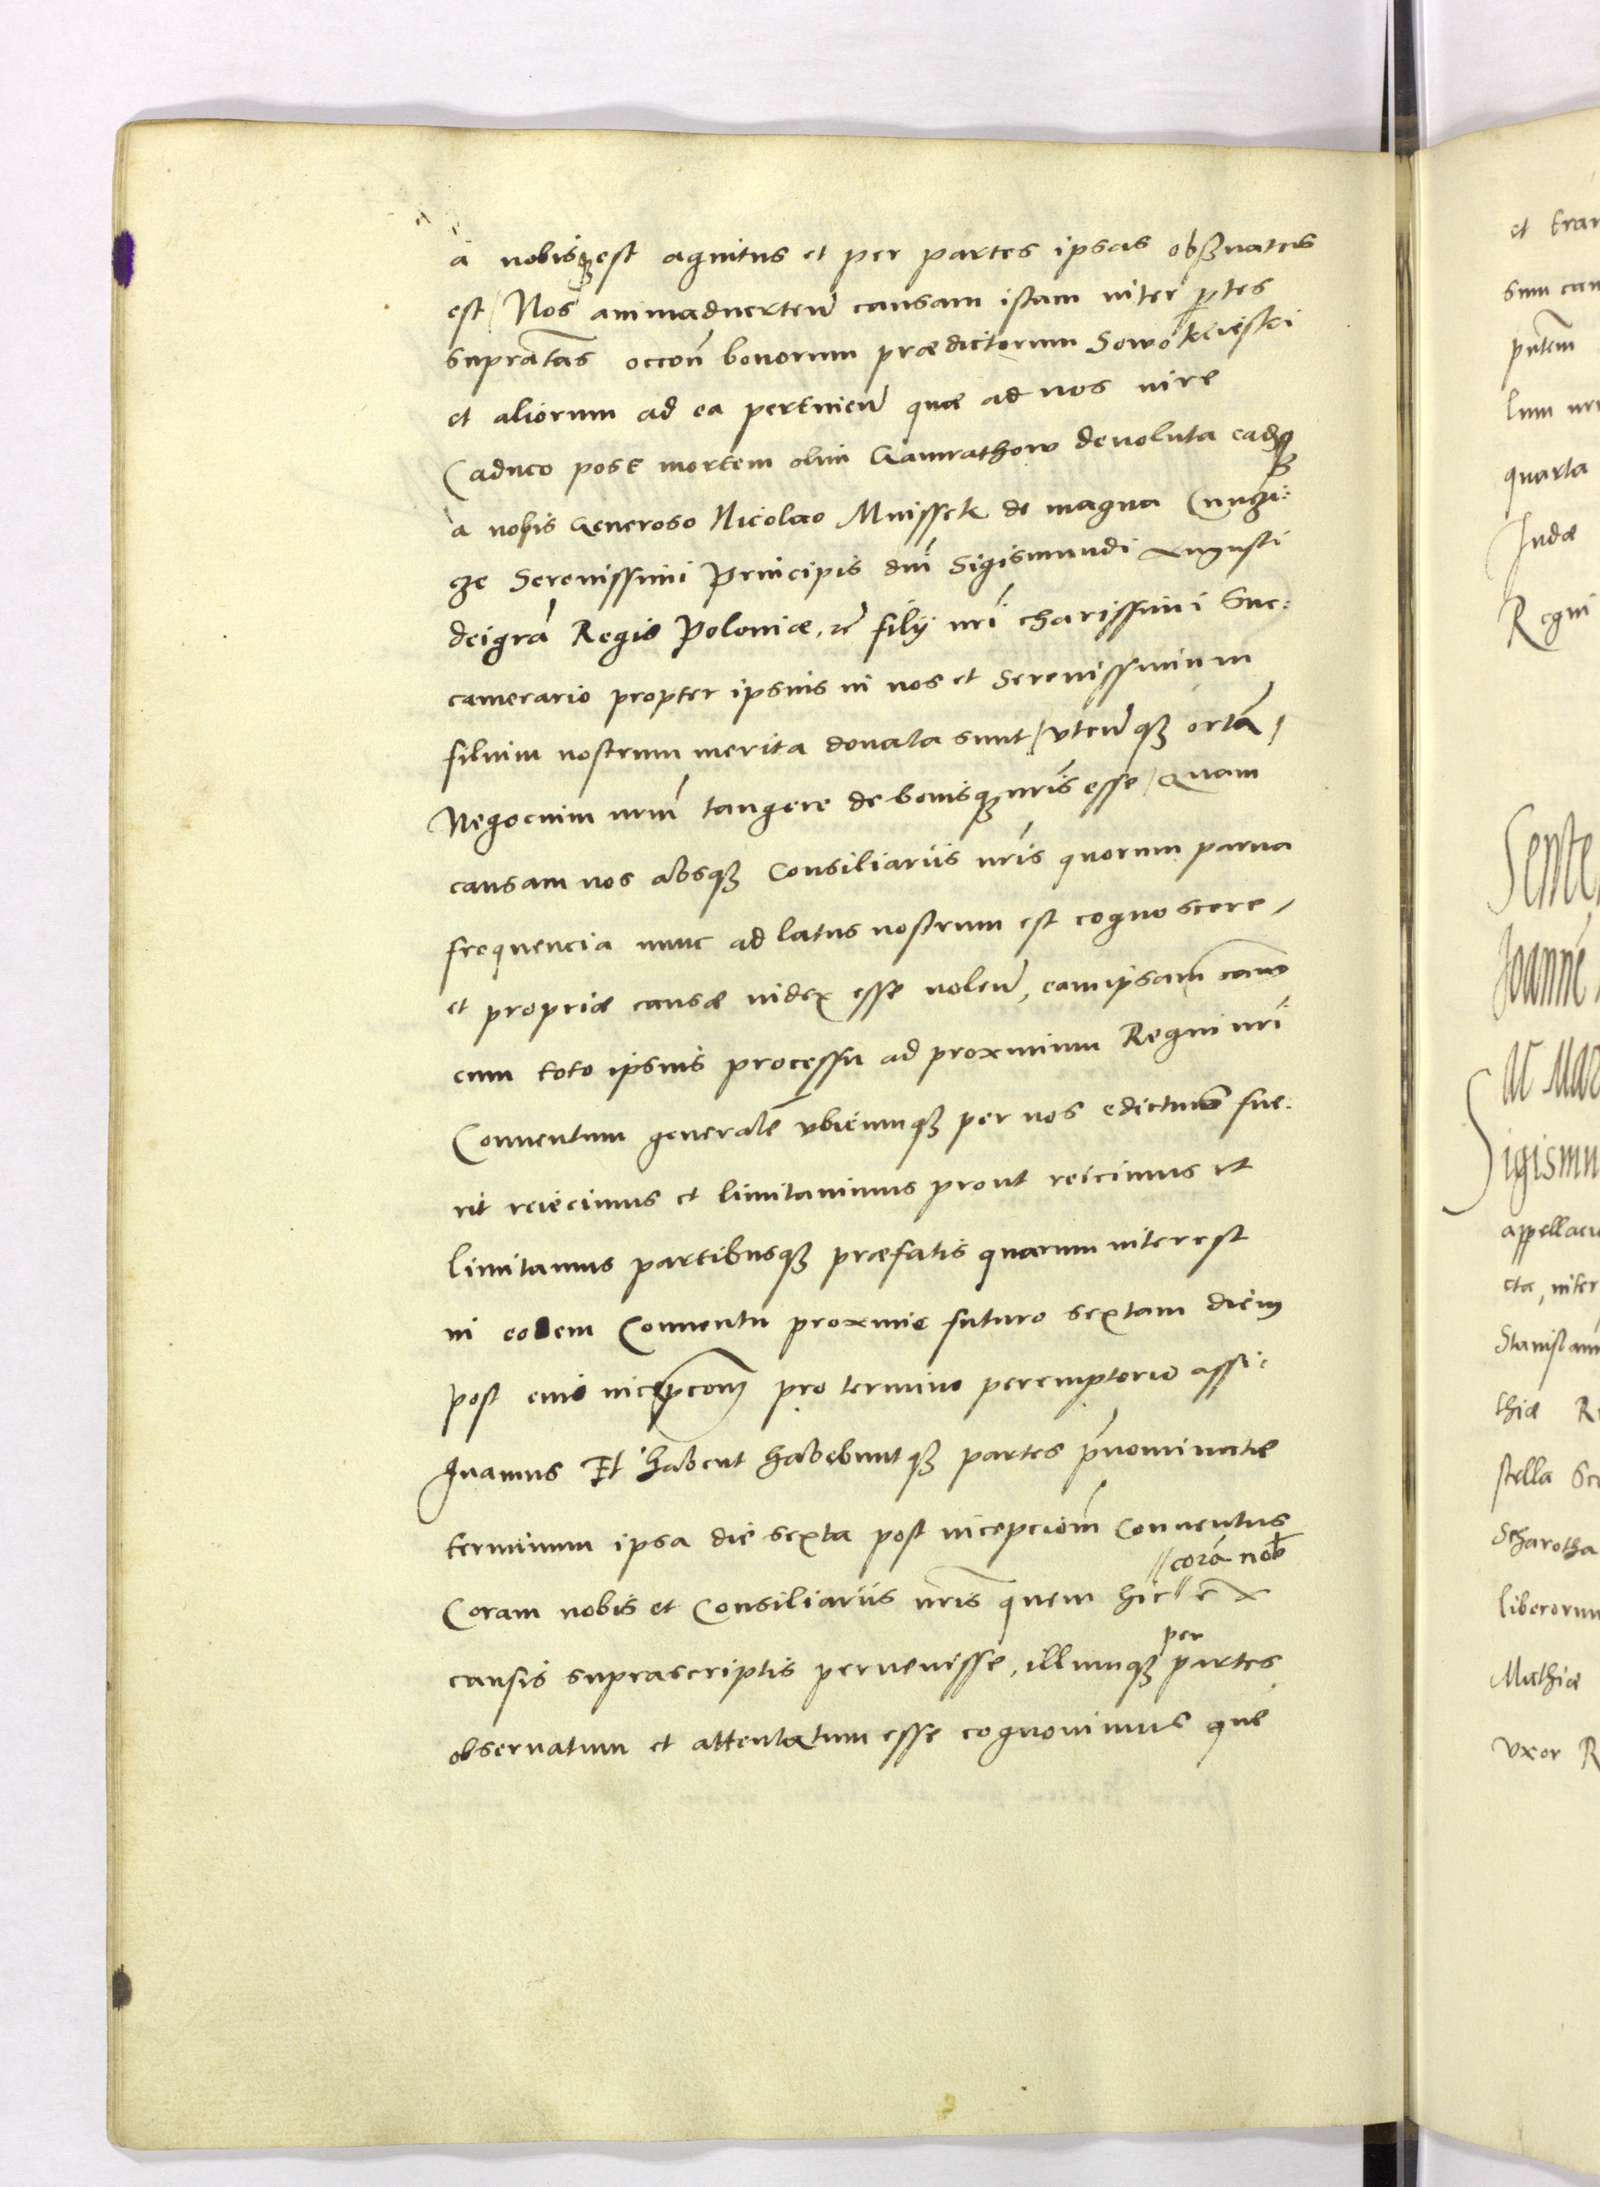 a nobisq3 est agnitus et per partes ipsas obseruatus
est / Nos animaduerteñ causam istam inter ptes
supratas occoñ bonorum prædictorum Sowo klieski
et aliorum ad ea pertineñ quæ ad nos iure
Caduco post mortem olim Gamrathow deuoluta eadq3
a nobis Generoso Nicolao Mnissek de magna Cuncži:
cze Serenissimi Principis dni Sigismundi Augusti
deigrã Regis Poloniæ, zc filij nri charissimi Suc:
camerario propter ipsius in nos et Serenissimum
filium nostrum merita donata sunt / vteñ q3 ortã /
Negocium nrm tangere de bonisq3 nris esse / Quam
causam nos absq3 Consiliariis nris quorum parua
frequencia nunc ad latus nostrum est cognoscere /
et propriæ causæ iudex esse noleñ, eam ipsam cam
cum toto ipsius processu ad proximum Regni nri
Conuentum generalẽ vbicumq3 per nos edictus fue:
rit reiecimus et limitauimus prout reicimus et
limitamus partibusq3 præfatis quarum interest
in eodem Conuentu proxime futuro sextam diem
post eius incepcoñ pro termino peremptorio assi:
gnamus Et habent habebuntq3 partes prnominatæ
terminum ipsa die sexta post incepcioñ Conuentus
// corã nob
Coram nobis et Consiliariis nris quem hic // e x
per
causis suprascriptis peruenisse, illumq3 partes
obseruatum et attentatum esse cognouimus que
et tran
sum cau
pntem
lum nr
quarta
Judæ
Regni
Senten
Joanne
ac Mar
Sigismu
appellaci
cta, inter
Stanislau
thiæ R
stella Sc
Scharotha
liberorum
Mathiæ
vxor R